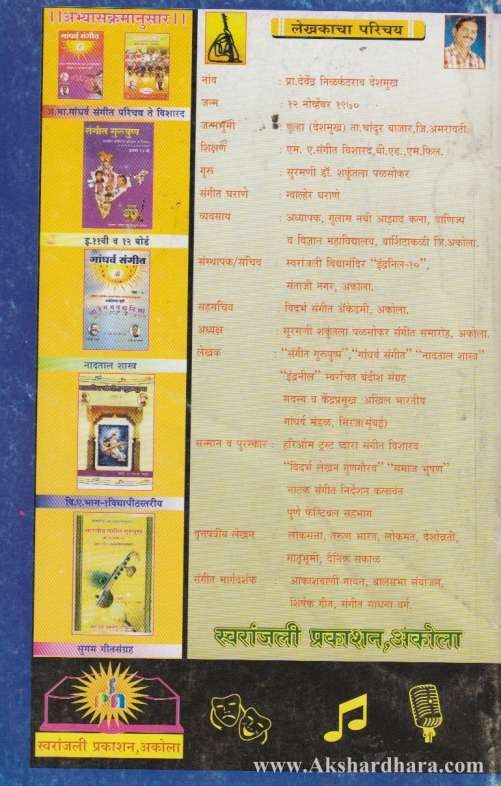 ||अभ्यासक्रमानुसार||
गांधर्व संगीत
अ.भा.गांधर्व संगीत परिचय ते विशारद
संगीत गुरुषुण
इ.११वी व १२ बोर्ड
गांधर्व संगीत
नादताल शास्त्र
बि.ए.भाग-१विद्यापीठस्तरीय
भारतीय संगीत गुरुषुण
सुगम गीतसंग्रह
लेखकाचा परिचय
नांव : प्रा.देवेंद्र निळकंठराव देशमुख
जन्म : १२ नोव्हेंबर १९७०
जन्मभूमी : दुल्हा (देशमुख) ता.चांदुर बाजार,जि.अमरावती.
शिक्षण : एम. ए.संगीत विशारद,बी.एड.,एम.फिल.
गुरू : सुरमणी डॉ. शकुंतला पळसोकर
संगीत घराणे : ग्वाल्हेर घराणे
व्यवसाय : अध्यापक, गुलाम नबी आझाद कला, वाणिज्य
व विज्ञान महाविद्यालय, बार्शिटाकळी जि.अकोला.
संस्थापक/सचिव : स्वरांजली विद्यामंदिर "इंद्रनिल-१०",
संताजी नगर, अकोला.
सहसचिव : विदर्भ संगीत ॲकेडमी, अकोला.
अध्यक्ष : सुरमणी शकुंतला पळसोकर संगीत समारोह, अकोला.
लेखक : "संगीत गुरुषुण","गांधर्व संगीत" "नादताल शास्त्र"
"इंद्रनील" स्वरचित बंदीश संग्रह
सदस्य व केंद्रप्रमुख अखिल भारतीय
गांधर्व मंडळ, मिरज(मुंबई)
सन्मान व पुरस्कार : हरिओम ट्रस्ट द्वारा संगीत विशारद
"विदर्भ लेखन गुणगौरव" "समाज भूषण"
नाटक संगीत निर्देशन कलावंत
पुणे फेस्टिवल सहभाग
वृत्तपत्रीय लेखन : लोकमत्ता, तरुण भारत, लोकमत, देशोन्नती,
मातृभूमी, दैनिक सकाळ
संगीत मार्गदर्शक : आकाशवाणी गायन, बालसभा संयोजन,
शिर्षक गीत, संगीत साधना वर्ग.
स्वरांजली प्रकाशन,अकोला
स्वरांजली प्रकाशन,अकोला
www.Akshardhara.com